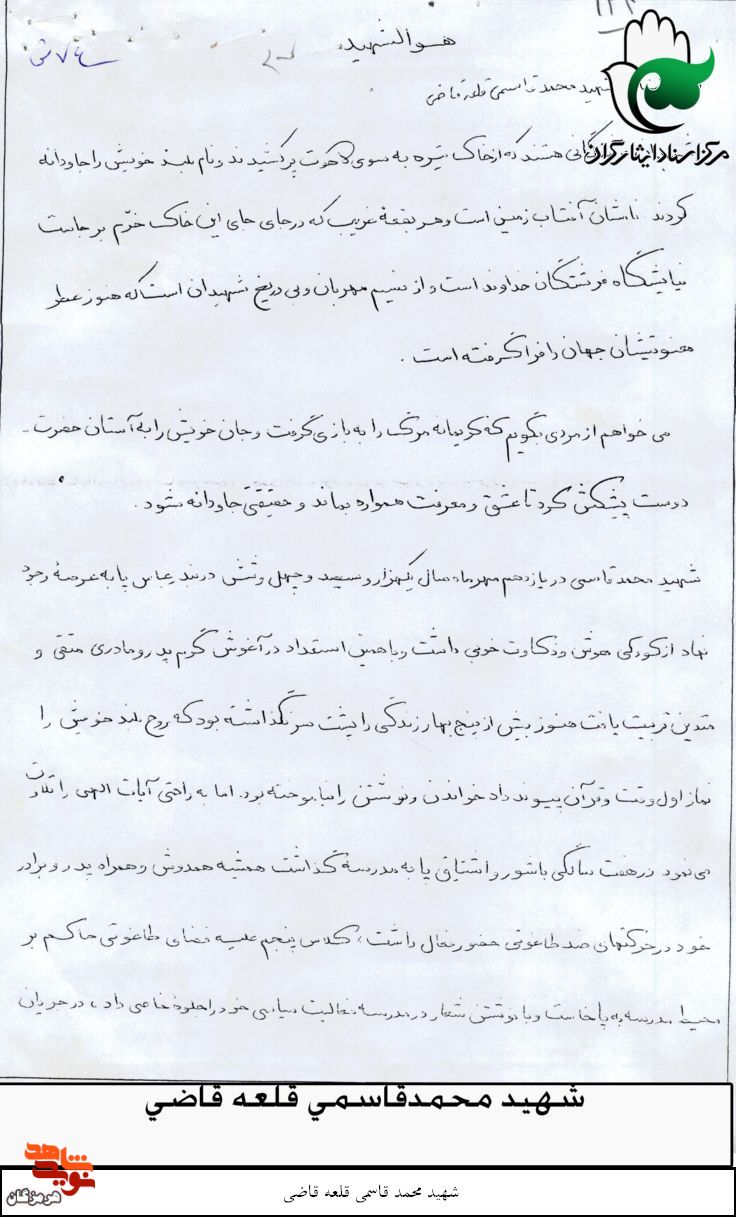 هوالشهید
۷۴ ش
شهید محمد قاسمی قلعه قاضی
مرکز اسناد ایثارگران
هستند که از خاک تیره به سوی لاهوت پر کشیدند و نام بلند خویش را جاودانه
کردند نامشان آفتاب زمین است و هر بقعهٔ غریب که در جای جای این خاک خرّم برجاست
نیایشگاه فرشتگان خداوند است و از نسیم مهربان و بی دریغ شهیدان است که هنوز عطر
معنویتشان جهان را فرا گرفته است .
می خواهم از مردی بگویم که کریمانه مرگ را به بازی گرفت و جان خویش را به آستان حضرت
دوست پیشکش کرد تا عشق و معرفت همواره بماند و حقیقتی جاودانه شود .
شهید محمد قاسمی در یازدهم مهرماه سال یکهزار و سیصد و چهل و شش در بندرعباس پا به عرصهٔ وجود
نهاد از کودکی هوش و ذکاوت خوبی داشت و با همین استعداد در آغوش گرم پدر و مادری متقی و
متدین تربیت یافت هنوز بیش از پنج بهار زندگی را پشت سر نگذاشته بود که روح بلند خویش را
نماز اول وقت و قرآن پیوند داد خواندن و نوشتن را نیاموخته بود. اما به راحتی آیات الهی را تلاوت
می نمود در هفت سالگی با شور و اشتیاق پا به مدرسه گذاشت همیشه همدوش و همراه پدر و برادر
خود در حرکتهای ضد طاغوتی حضور فعال داشت، کلاس پنجم علیه فضای طاغوتی حاکم بر
محیط مدرسه به پا خاست و با نوشتن شعار در مدرسه فعالیت سیاسی خود را جلوهٔ خاصی داد، در جریان
شهيد محمدقاسمي قلعه قاضي
نوید شاهد
هرمزگان
شهید محمد قاسمی قلعه قاضی